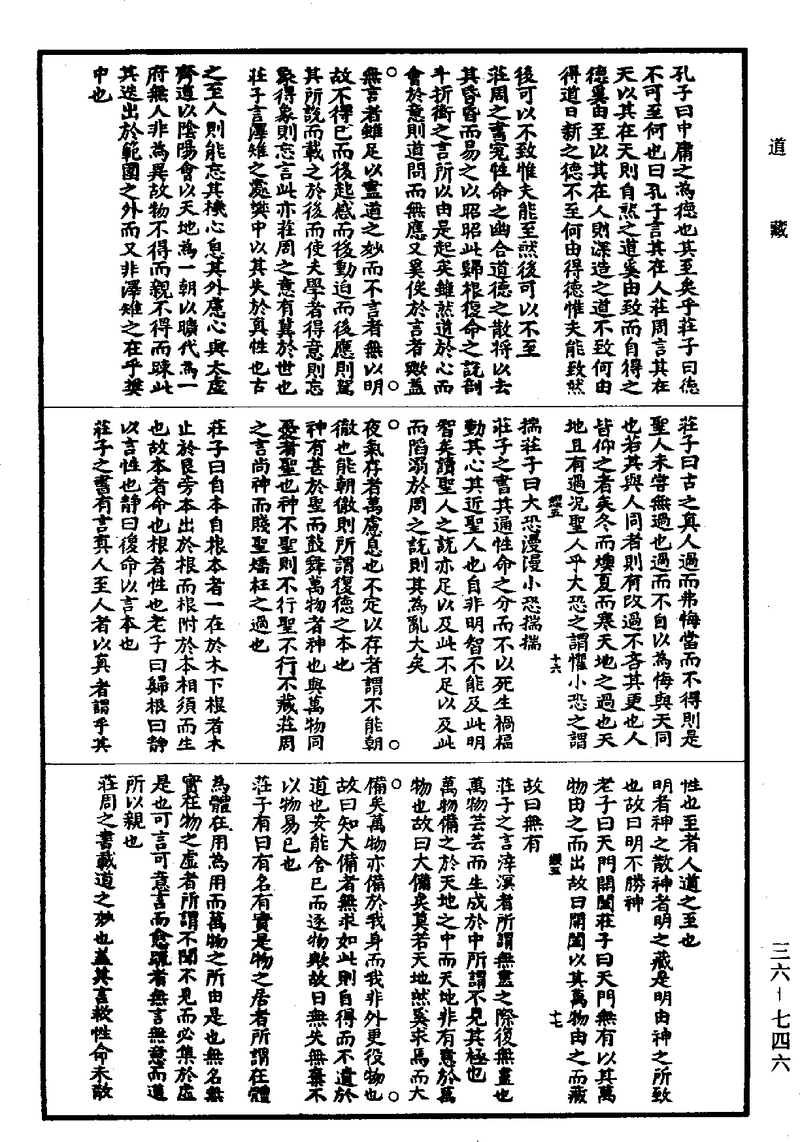 道藏
孔子曰中庸之為德也其至矣乎莊子曰德
不可至何也曰孔子言其在人莊周言其在
天以其在天則自然之道奚由致而自得之
德奚由至以其在人則深造之道不致何由
得道日新之德不至何由得德惟夫能致然
後可以不致惟夫能至然後可以不至
莊周之書究性命之幽合道德之散將以去
其昏昏而易之以昭昭此歸根復命之說剖
斗折衡之言所以由是起矣雖然道於心而
會於意則道問而無應又奚俟於言者歟蓋
無言者雖足以盡道之妙而不言者無以明
故不得已而後起感而後動迫而後應則駕
其所說而載之於後而使夫學者得意則忘
象得象則忘言此亦莊周之意有冀於世也
莊子言澤雉之處樊中以其失於真性也古
之至人則能忘其機心息其外應心與太虛
齊道以陰陽會以天地為一朝以曠代為一
府無人非為異故物不得而親不得而踈此
其迭出於範圍之外而又非澤雉之在乎樊
中也
莊子曰古之真人過而弗悔當而不得則是
聖人未嘗無過也過而不自以為悔與天同
也若其與人同者則有改過不吝其更也人
皆仰之者矣冬而燠夏而寒天地之過也天
地且有過況聖人乎大恐之謂懼小恐之謂
惴莊子曰大恐漫漫小恐惴惴
莊子之書其通性命之分而不以死生禍福
動其心其近聖人也自非明智不能及此明
智矣讀聖人之說亦足以及此不足以及此
而陷溺於周之說則其為亂大矣
夜氣存者萬慮息也不定以存者謂不能朝
徹也能朝徹則所謂復德之本也
神有甚於聖而鼓舞萬物者神也與萬物同
憂者聖也神不聖則不行聖不行不藏莊周
之言尚神而賤聖矯枉之過也
莊子曰自本自根本者一在於木下根者木
止於艮旁本出於根而根附於本相須而生
也故本者命也根者性也老子曰歸根曰靜
以言性也靜曰復命以言本也
莊子之書有言真人至人者以真者謂乎其
性也至者人道之至也
明者神之散神者明之藏是明由神之所致
也故曰明不勝神
老子曰天門開闔莊子曰天門無有以其萬
物由之而出故曰開闔以其萬物由之而藏
故曰無有
莊子之言滓溟者所謂無盡之際復無盡也
萬物芸芸而生成於中所謂不見其極也
萬物備之於天地之中而天地非有意於萬
物也故曰大備矣莫若天地然奚求焉而大
備矣萬物亦備於我身而我非外更役物也
故曰知大備者無求如此則自得而不遺於
道也安能舍己而逐物歟故曰無失無棄不
以物易己也
莊子有曰有名有實是物之居者所謂在體
為體在用為用而萬物之所由是也無名無
實在物之虛者所謂不聞不見而必集於虛
是也可言可意言而愈疎者無言無意而道
所以親也
莊周之書載道之妙也蓋其言救性命未散
三六-七四六